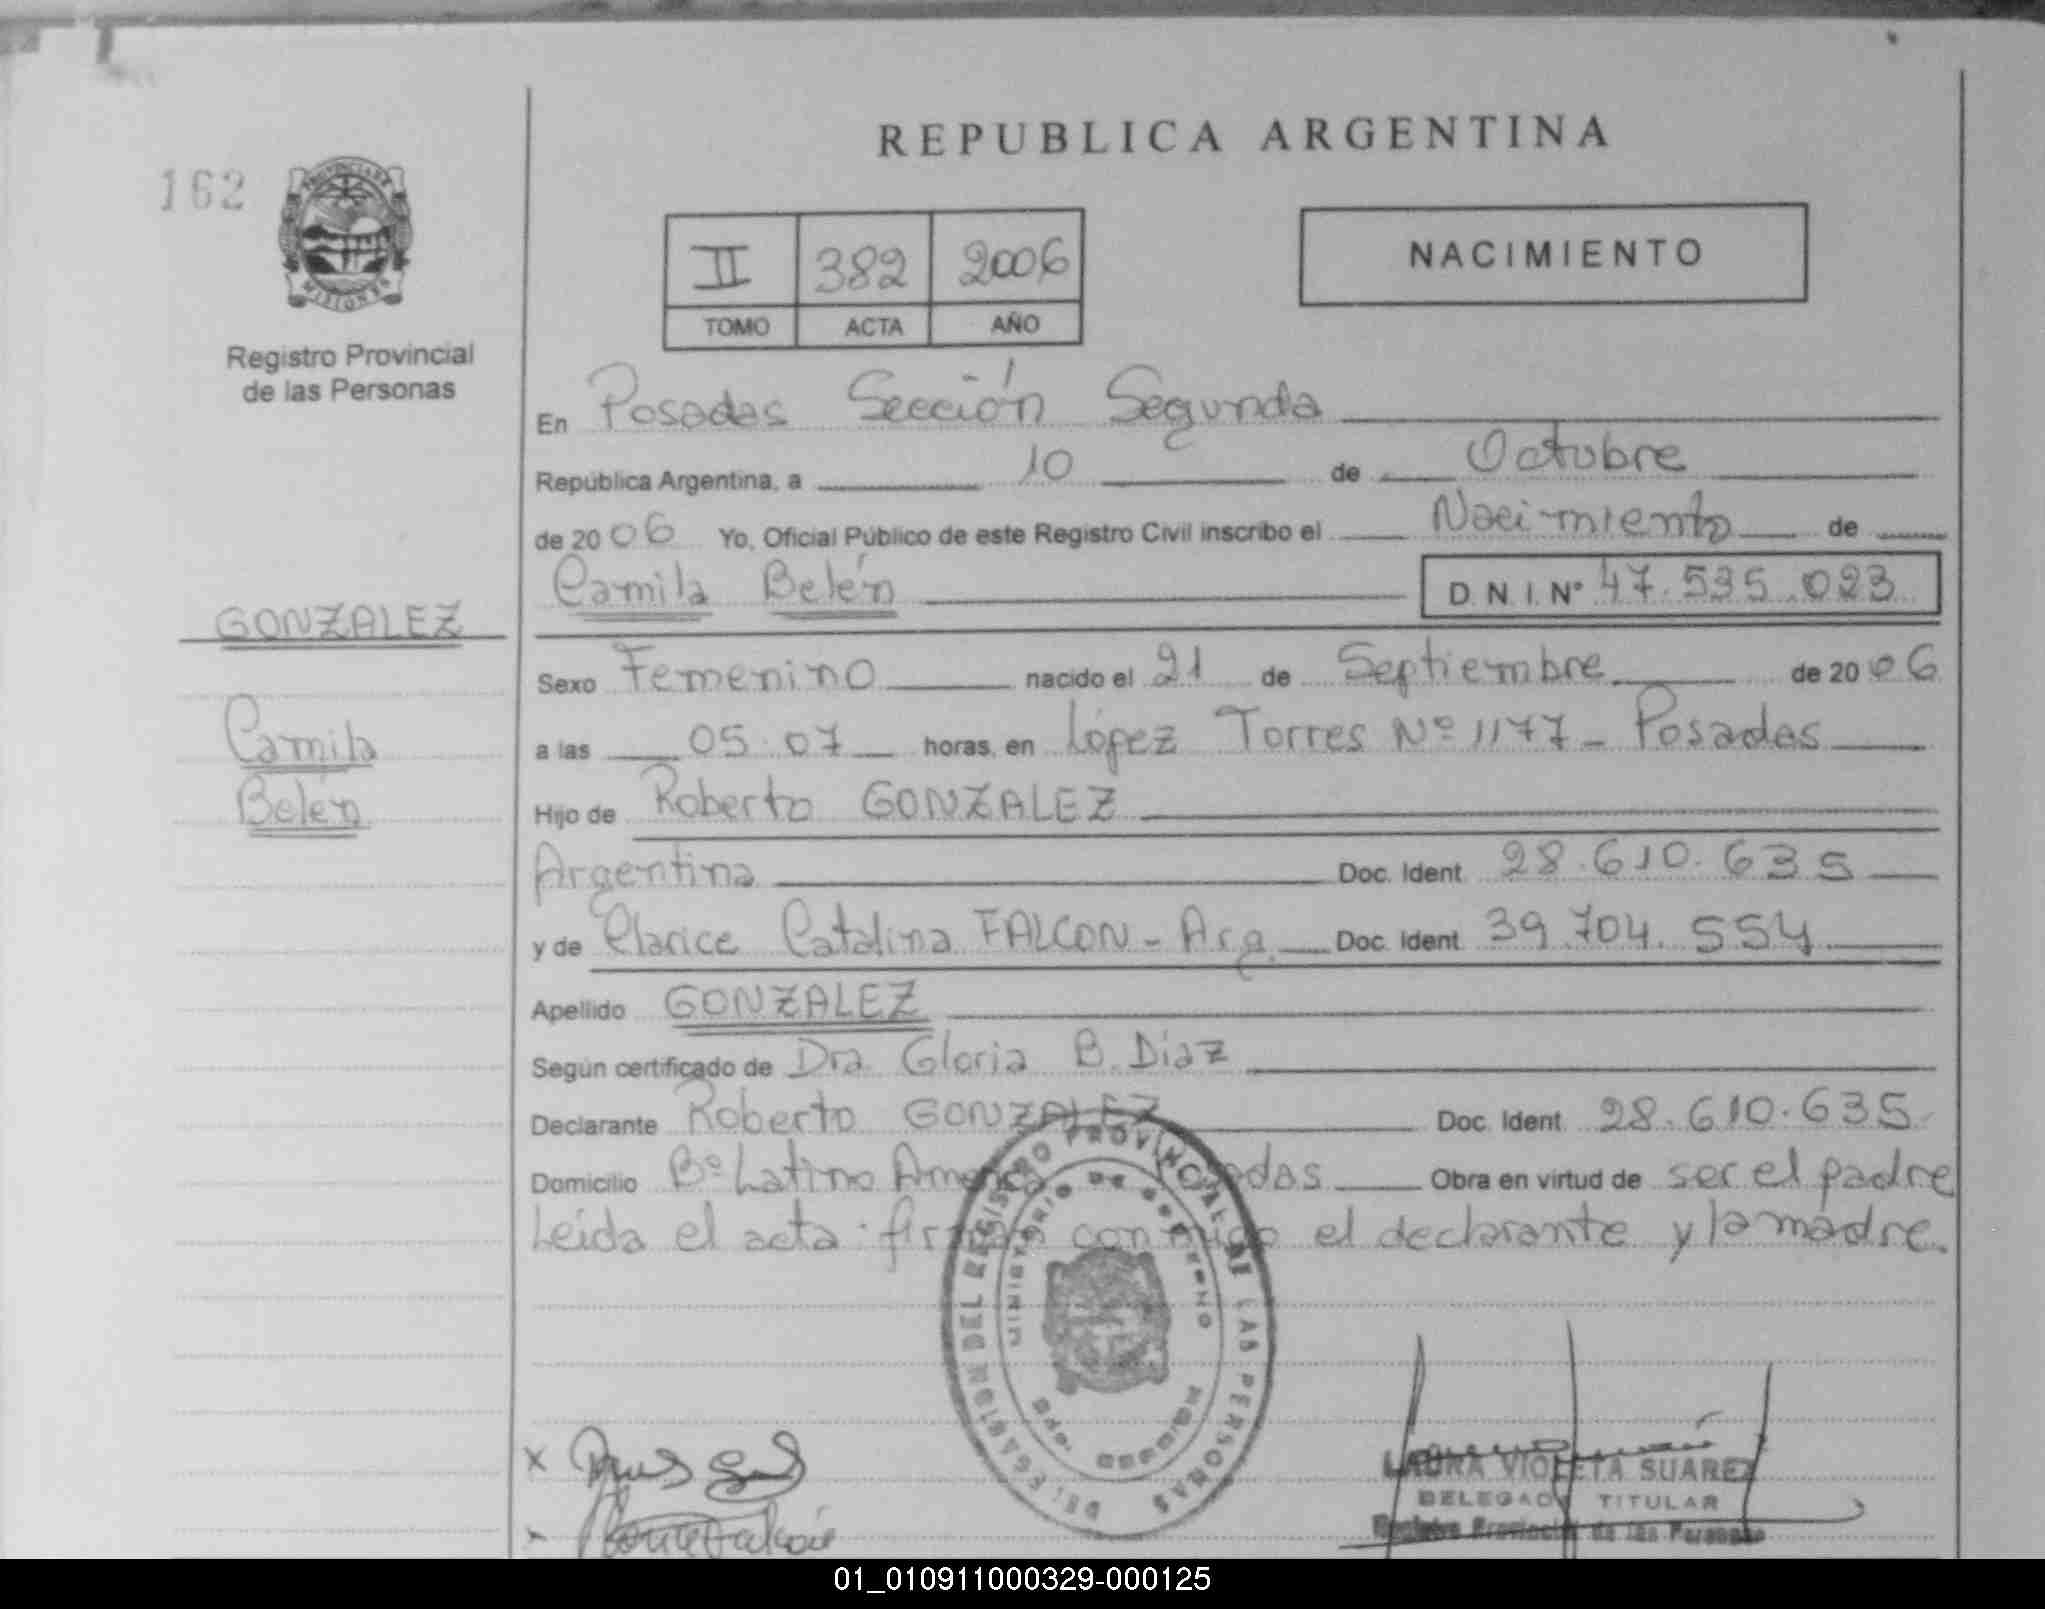 REPUBLICA ARGENTINA
162
PROVINCIA DE
MISIONES
Registro Provincial
de las Personas
II 382 2006
TOMO ACTA AÑO
NACIMIENTO
En Posadas Sección Segunda
República Argentina, a 10 de Octubre
de 2006 Yo, Oficial Público de este Registro Civil inscribo el Nacimiento de
Camila Belén D.N.I. Nº 47.535.023
GONZALEZ
Camila
Belén
Sexo Femenino nacido el 21 de Septiembre de 2006
a las 05.07 horas, en López Torres Nº 1177 - Posadas
Hijo de Roberto GONZALEZ
Argentina Doc. Ident. 28.610.635
y de Clarice Catalina FALCON - Arg. Doc. Ident. 39.704.554
Apellido GONZALEZ
Según certificado de Dra Gloria B. Diaz
Declarante Roberto GONZALEZ Doc. Ident. 28.610.635
Domicilio Bº Latino Obra en virtud de ser el padre
Leída el acta el declarante y la madre.
DELEGACION DEL REGISTRO PROVINCIAL DE LAS PERSONAS
MINISTERIO DE GOBIERNO
LAURA VIOLETA SUAREZ
DELEGADO TITULAR
Registro Provincial de las Personas
01_010911000329-000125